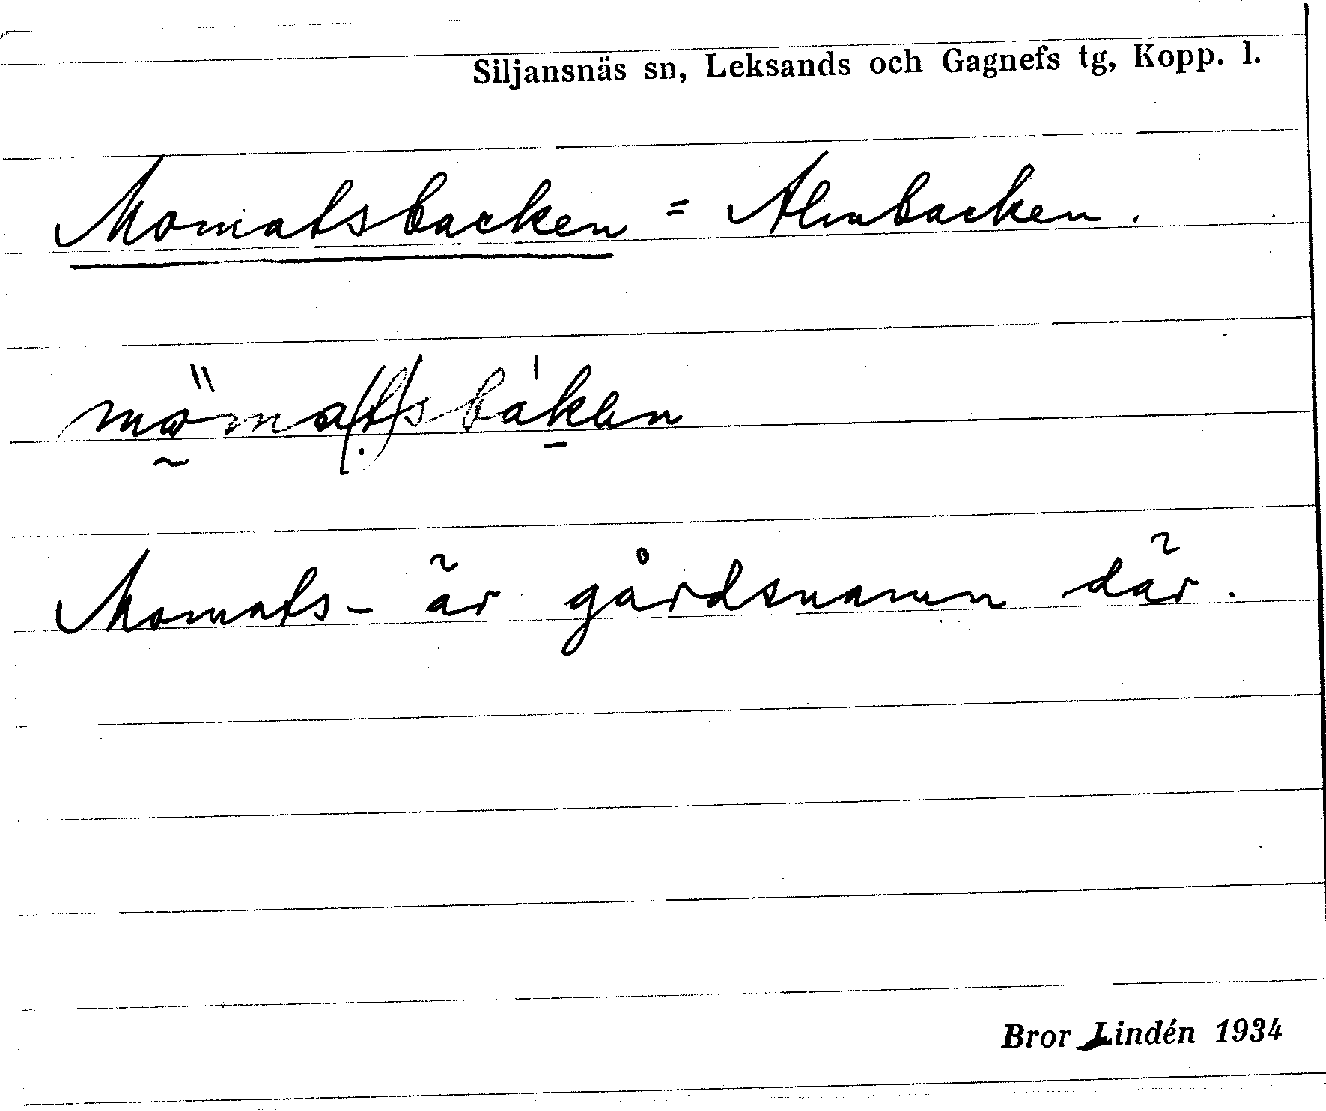 Siljansnäs sn, Leksands och Gagnefs tg, Kopp. l.
Momatsbacken = Almbacken.
Momats- är gårdsnamn där.
Bror Lindén 1934